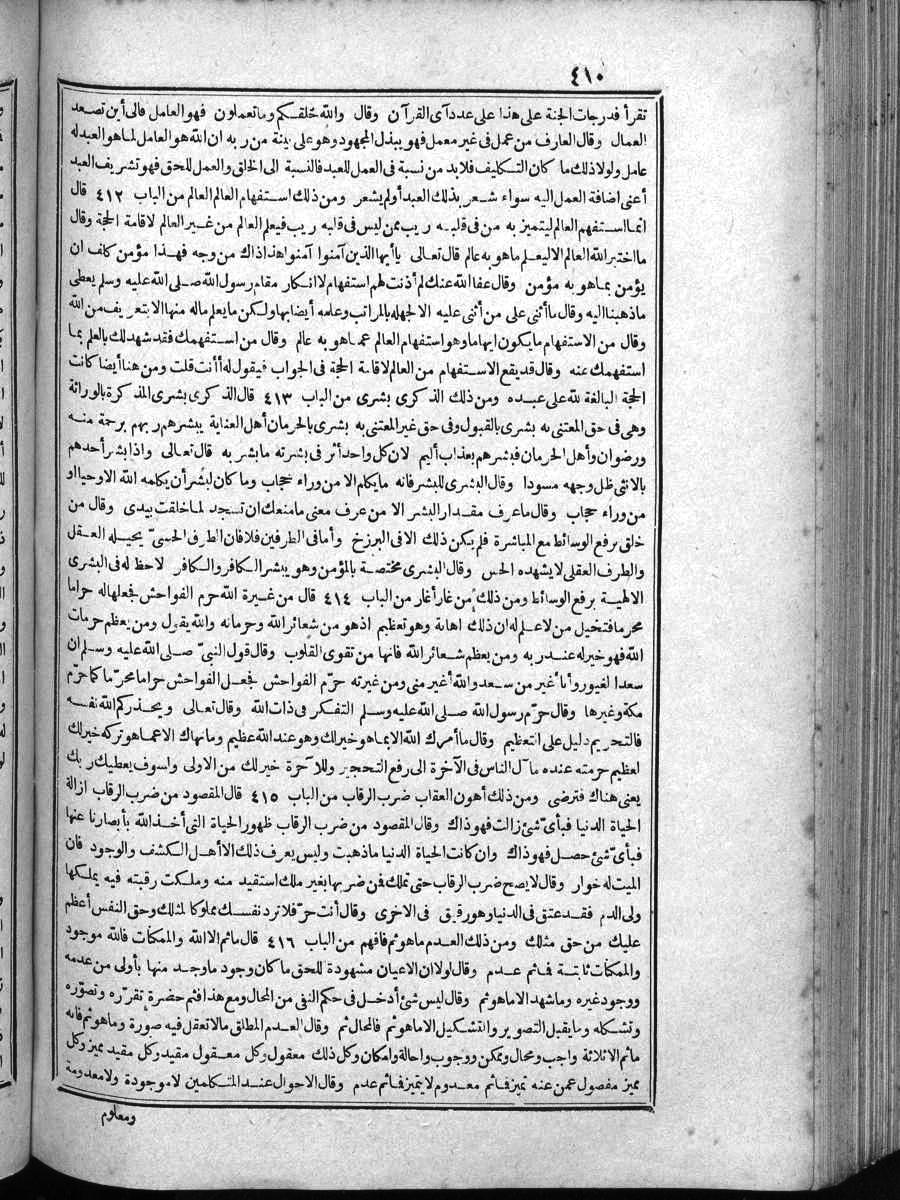 ٤١٠
تقرأ فدرجات الجنة على هذا على عدد آى القرآن وقال والله خلقكم وما تعملون فهو العامل فالى أين تصعد
العمال وقال العارف من عمل فى غير معمل فهو يبذل المجهود وهو على بينة من ربه ان الله هو العامل لما هو العبد له
عامل ولولا ذلك ما كان التكليف فلابد من نسبة فى العمل للعبد فالنسبة الى الخلق والعمل للحق فهو تشريف العبد
أعنى اضافة العمل اليه سواء شعر بذلك العبد أو لم يشعر ومن ذلك استفهام العالم العالم من الباب ٤١٢ قال
انما استفهم العالم ليتميز به من فى قلبه ريب ممن ليس فى قلبه ريب فيعلم العالم من غير العالم لاقامة الحجة وقال
ما اختبر الله العالم الا ليعلم ما هو به عالم قال تعالى يا أيها الذين آمنوا آمنوا هذا ذاك من وجه فهذا مؤمن كلف ان
يؤمن بما هو به مؤمن وقال عفا الله عنك لم أذنت لهم استفهام لا انكار مقام رسول الله صلى الله عليه وسلم يعطى
ما ذهبنا اليه وقال ما أثنى على من أثنى عليه الا لجهله بالمراتب وعلمه أيضا بها ولكن ما يعلم ماله منها الا بتعريف من الله
وقال من الاستفهام ما يكون ايهاما وهو استفهام العالم عما هو به عالم وقال من استفهمك فقد شهد لك بالعلم بما
استفهمك عنه وقال قد يقع الاستفهام من العالم لاقامة الحجة فى الجواب فيقول له أأنت قلت ومن هنا أيضا كانت
الحجة البالغة لله على عبده ومن ذلك الذكرى بشرى من الباب ٤١٣ قال الذكرى بشرى المذكرة بالوراثة
وهى فى حق المعتنى به بشرى بالقبول وفى حق غير المعتنى به بشرى بالحرمان أهل العناية يبشرهم ربهم برحمة منه
ورضوان وأهل الحرمان فبشرهم بعذاب أليم لان كل واحد أثر فى بشرته ما بشر به قال تعالى واذا بشر أحدهم
بالانثى ظل وجهه مسودا وقال البشرى للبشر فانه ما يكلم الا من وراء حجاب وما كان لبشر أن يكلمه الله الا وحيا او
من وراء حجاب وقال ما عرف مقدار البشر الا من عرف معنى ما منعك ان تسجد لما خلقت بيدى وقال من
خلق برفع الوسائط مع المباشرة فلم يكن ذلك الا فى البرزخ وأما فى الطرفين فلا فان الطرف الحسى يحيله العقل
والطرف العقلى لا يشهده الحس وقال البشرى مختصة بالمؤمن وهو يبشر الكافر والكافر لاحظ له فى البشرى
الالهية برفع الوسائط ومن ذلك من غار أغار من الباب ٤١٤ قال من غيرة الله حرم الفواحش فجعلها له حراما
محرما فتخيل من لا علم له ان ذلك اهانة وهو تعظيم اذ هو من شعائر الله وحرماته والله يقول ومن يعظم حرمات
الله فهو خير له عند ربه ومن يعظم شعائر الله فانها من تقوى القلوب وقال قول النبى صلى الله عليه وسلم ان
سعدا لغيور وأنا أغير من سعد والله أغير منى ومن غيرته حرم الفواحش فجعل الفواحش حراما محرما كما حرم
مكة وغيرها وقال حرم رسول الله صلى الله عليه وسلم التفكر فى ذات الله وقال تعالى ويحذركم الله نفسه
فالتحريم دليل على التعظيم وقال ما أمرك الله الا بما هو خير لك وهو عند الله عظيم وما نهاك الا عما هو تركه خير لك
لعظيم حرمته عنده مآل الناس فى الآخرة الى رفع التحجير وللآخرة خير لك من الاولى ولسوف يعطيك ربك
يعنى هناك فترضى ومن ذلك أهون العقاب ضرب الرقاب من الباب ٤١٥ قال المقصود من ضرب الرقاب ازالة
الحياة الدنيا فبأى شئ زالت فهو ذاك وقال المقصود من ضرب الرقاب ظهور الحياة التى أخذ الله بأبصارنا عنها
فبأى شئ حصل فهو ذاك وان كانت الحياة الدنيا ما ذهبت وليس يعرف ذلك الا أهل الكشف والوجود فان
الميت له خوار وقال لا يصح ضرب الرقاب حتى تملك فمن ضربها بغير ملك استقيد منه وملكت رقبته فيه يملكها
ولى الدم فقد عتق فى الدنيا وهو رقيق فى الاخرى وقال أنت حر فلا ترد نفسك مملوكا لمثلك وحق النفس أعظم
عليك من حق مثلك ومن ذلك العدم ما هو ثم فافهم من الباب ٤١٦ قال ما ثم الا الله والممكنات فالله موجود
والممكنات ثابتة فما ثم عدم وقال لولا ان الاعيان مشهودة للحق ما كان وجود ما وجد منها بأولى من عدمه
ووجود غيره وما شهد الا ما هو ثم وقال ليس شئ أدخل فى حكم النفى من المحال ومع هذا فثم حضرة تقرره وتصوره
وتشكله وما يقبل التصوير والتشكيل الا ما هو ثم فالمحال ثم وقال العدم المطلق ما لا تعقل فيه صورة وما هو ثم فانه
ما ثم الا ثلاثة واجب ومحال وممكن ووجوب واحالة وامكان وكل ذلك معقول وكل معقول مقيد وكل مقيد مميز وكل
مميز مفصول عمن عنه تميز فما ثم معدوم لا يتميز فما ثم عدم وقال الاحوال عند المتكلمين لا موجودة ولا معدومة
ومعلوم